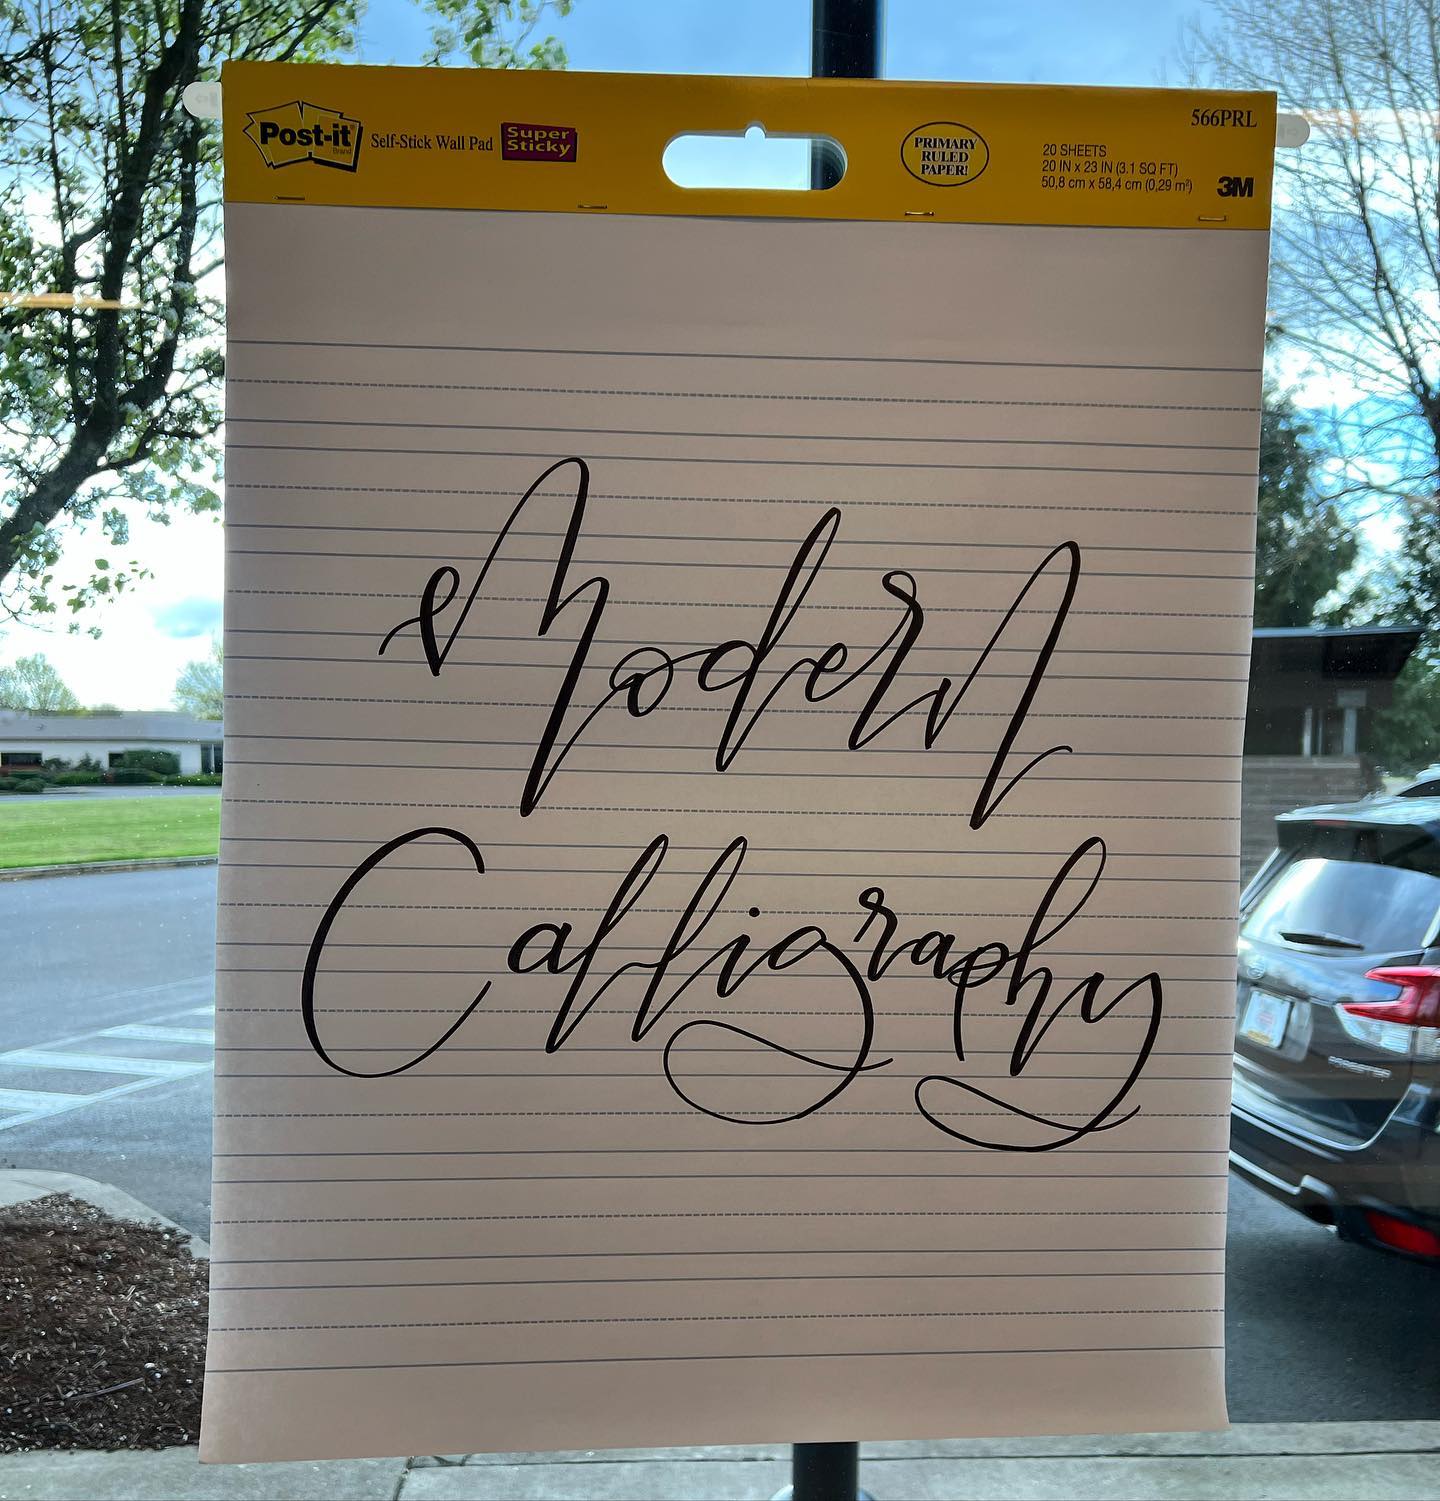 Post-it
Brand
Self-Stick Wall Pad
Super
Sticky
PRIMARY
RULED
PAPER!
20 SHEETS
20 IN x 23 IN (3.1 SQ FT)
50,8 cm x 58,4 cm (0,29 m²)
566PRL
3M
Modern
Calligraphy